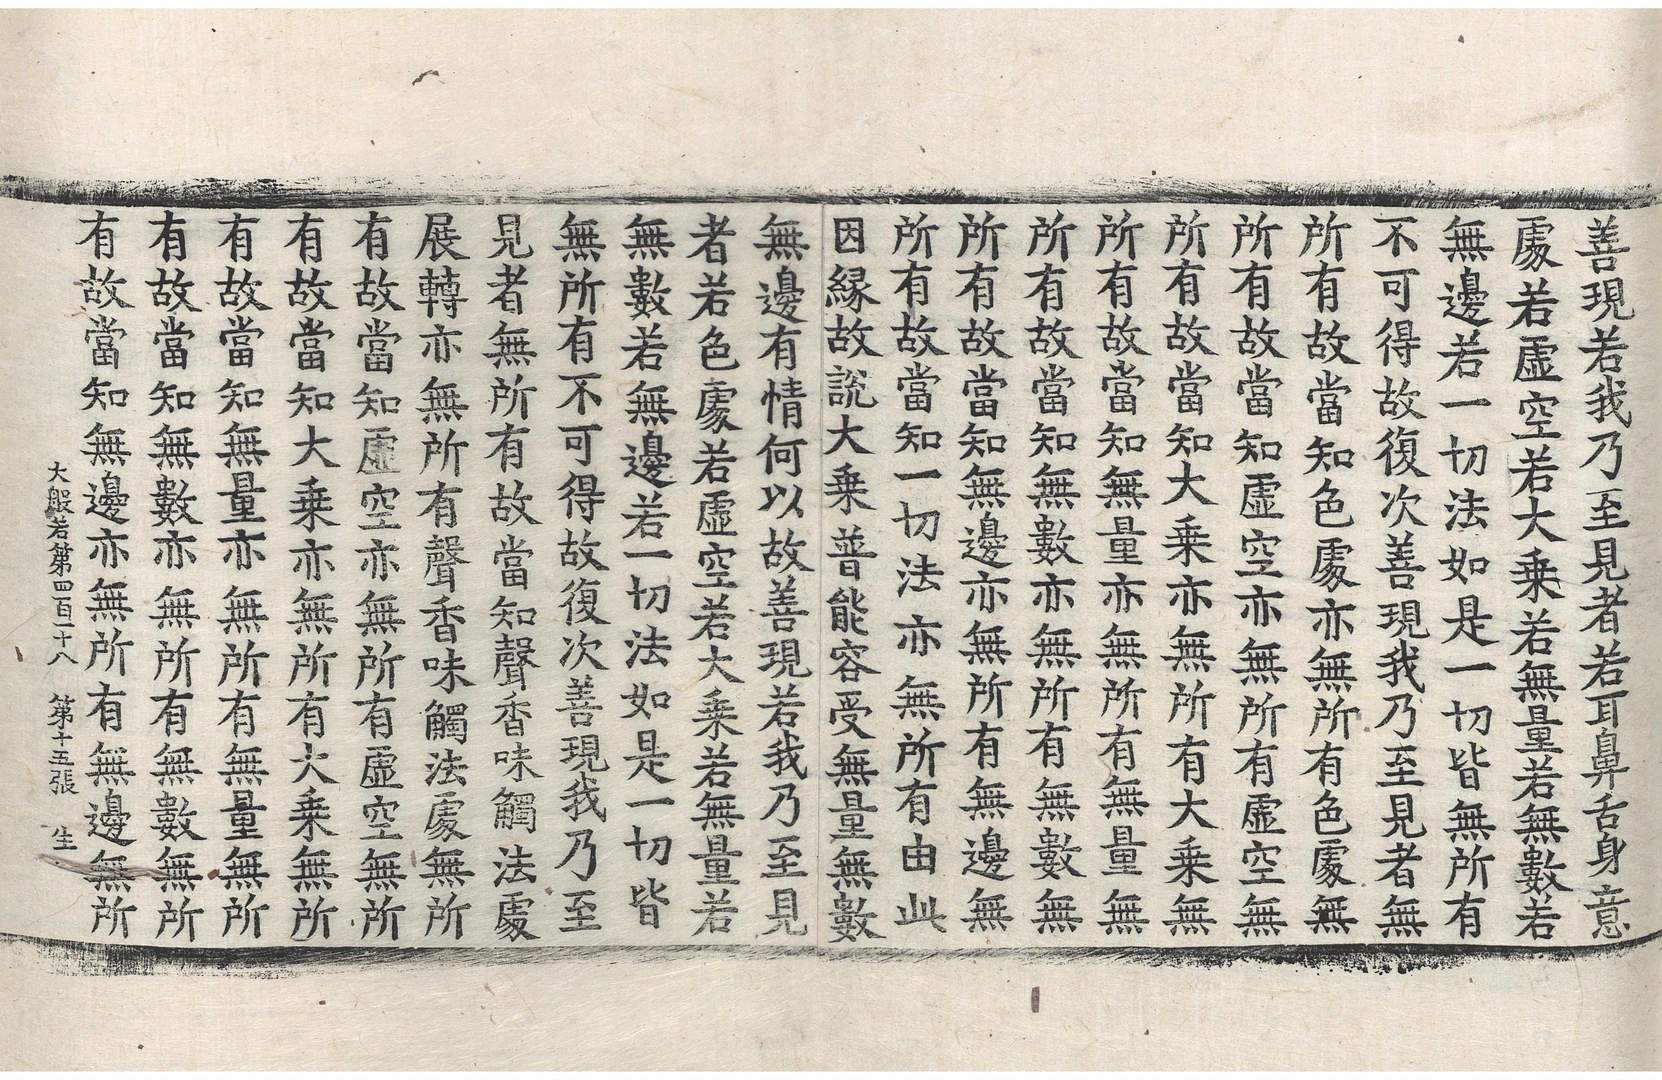 善現若我乃至見者若耳鼻舌身意
處若虛空若大乗若無量若無數若
無邊若一切法如是一切皆無所有
不可得故復次善現我乃至見者無
所有故當知色處亦無所有色處無
所有故當知虛空亦無所有虛空無
所有故當知大乗亦無所有大乗無
所有故當知無量亦無所有無量無
所有故當知無數亦無所有無數無
所有故當知無邊亦無所有無邊無
所有故當知一切法亦無所有由此
因縁故說大乗普能容受無量無數
無邊有情何以故善現若我乃至見
者若色處若虛空若大乗若無量若
無數若無邊若一切法如是一切皆
無所有不可得故復次善現我乃至
見者無所有故當知聲香味觸法處
展轉亦無所有聲香味觸法處無所
有故當知虛空亦無所有虛空無所
有故當知大乗亦無所有大乗無所
有故當知無量亦無所有無量無所
有故當知無數亦無所有無數無所
有故當知無邊亦無所有無邊無所
大般若第四百一十八　第十五張　生